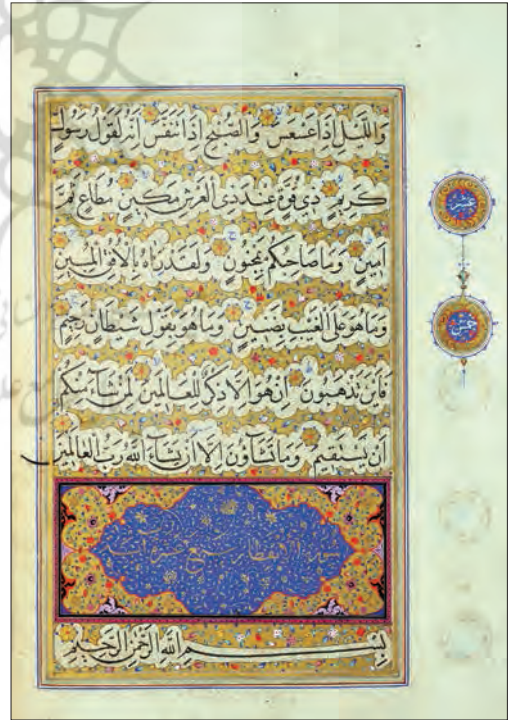 وَاللَّيْلِ إِذَا عَسْعَسَ وَالصُّبْحِ إِذَا تَنَفَّسَ إِنَّهُ لَقَوْلُ رَسُولٍ
كَرِيمٍ ذِي قُوَّةٍ عِنْدَ ذِي الْعَرْشِ مَكِينٍ مُطَاعٍ ثَمَّ
أَمِينٍ وَمَا صَاحِبُكُمْ بِمَجْنُونٍ وَلَقَدْ رَآهُ بِالْأُفُقِ الْمُبِينِ
وَمَا هُوَ عَلَى الْغَيْبِ بِضَنِينٍ وَمَا هُوَ بِقَوْلِ شَيْطَانٍ رَجِيمٍ
فَأَيْنَ تَذْهَبُونَ إِنْ هُوَ إِلَّا ذِكْرٌ لِلْعَالَمِينَ لِمَنْ شَاءَ مِنْكُمْ
أَنْ يَسْتَقِيمَ وَمَا تَشَاؤُنَ إِلَّا أَنْ يَشَاءَ اللَّهُ رَبُّ الْعَالَمِينَ
سورة الانفطار تسع عشرة آية
بِسْمِ اللَّهِ الرَّحْمَنِ الرَّحِيمِ
عشر
خمس